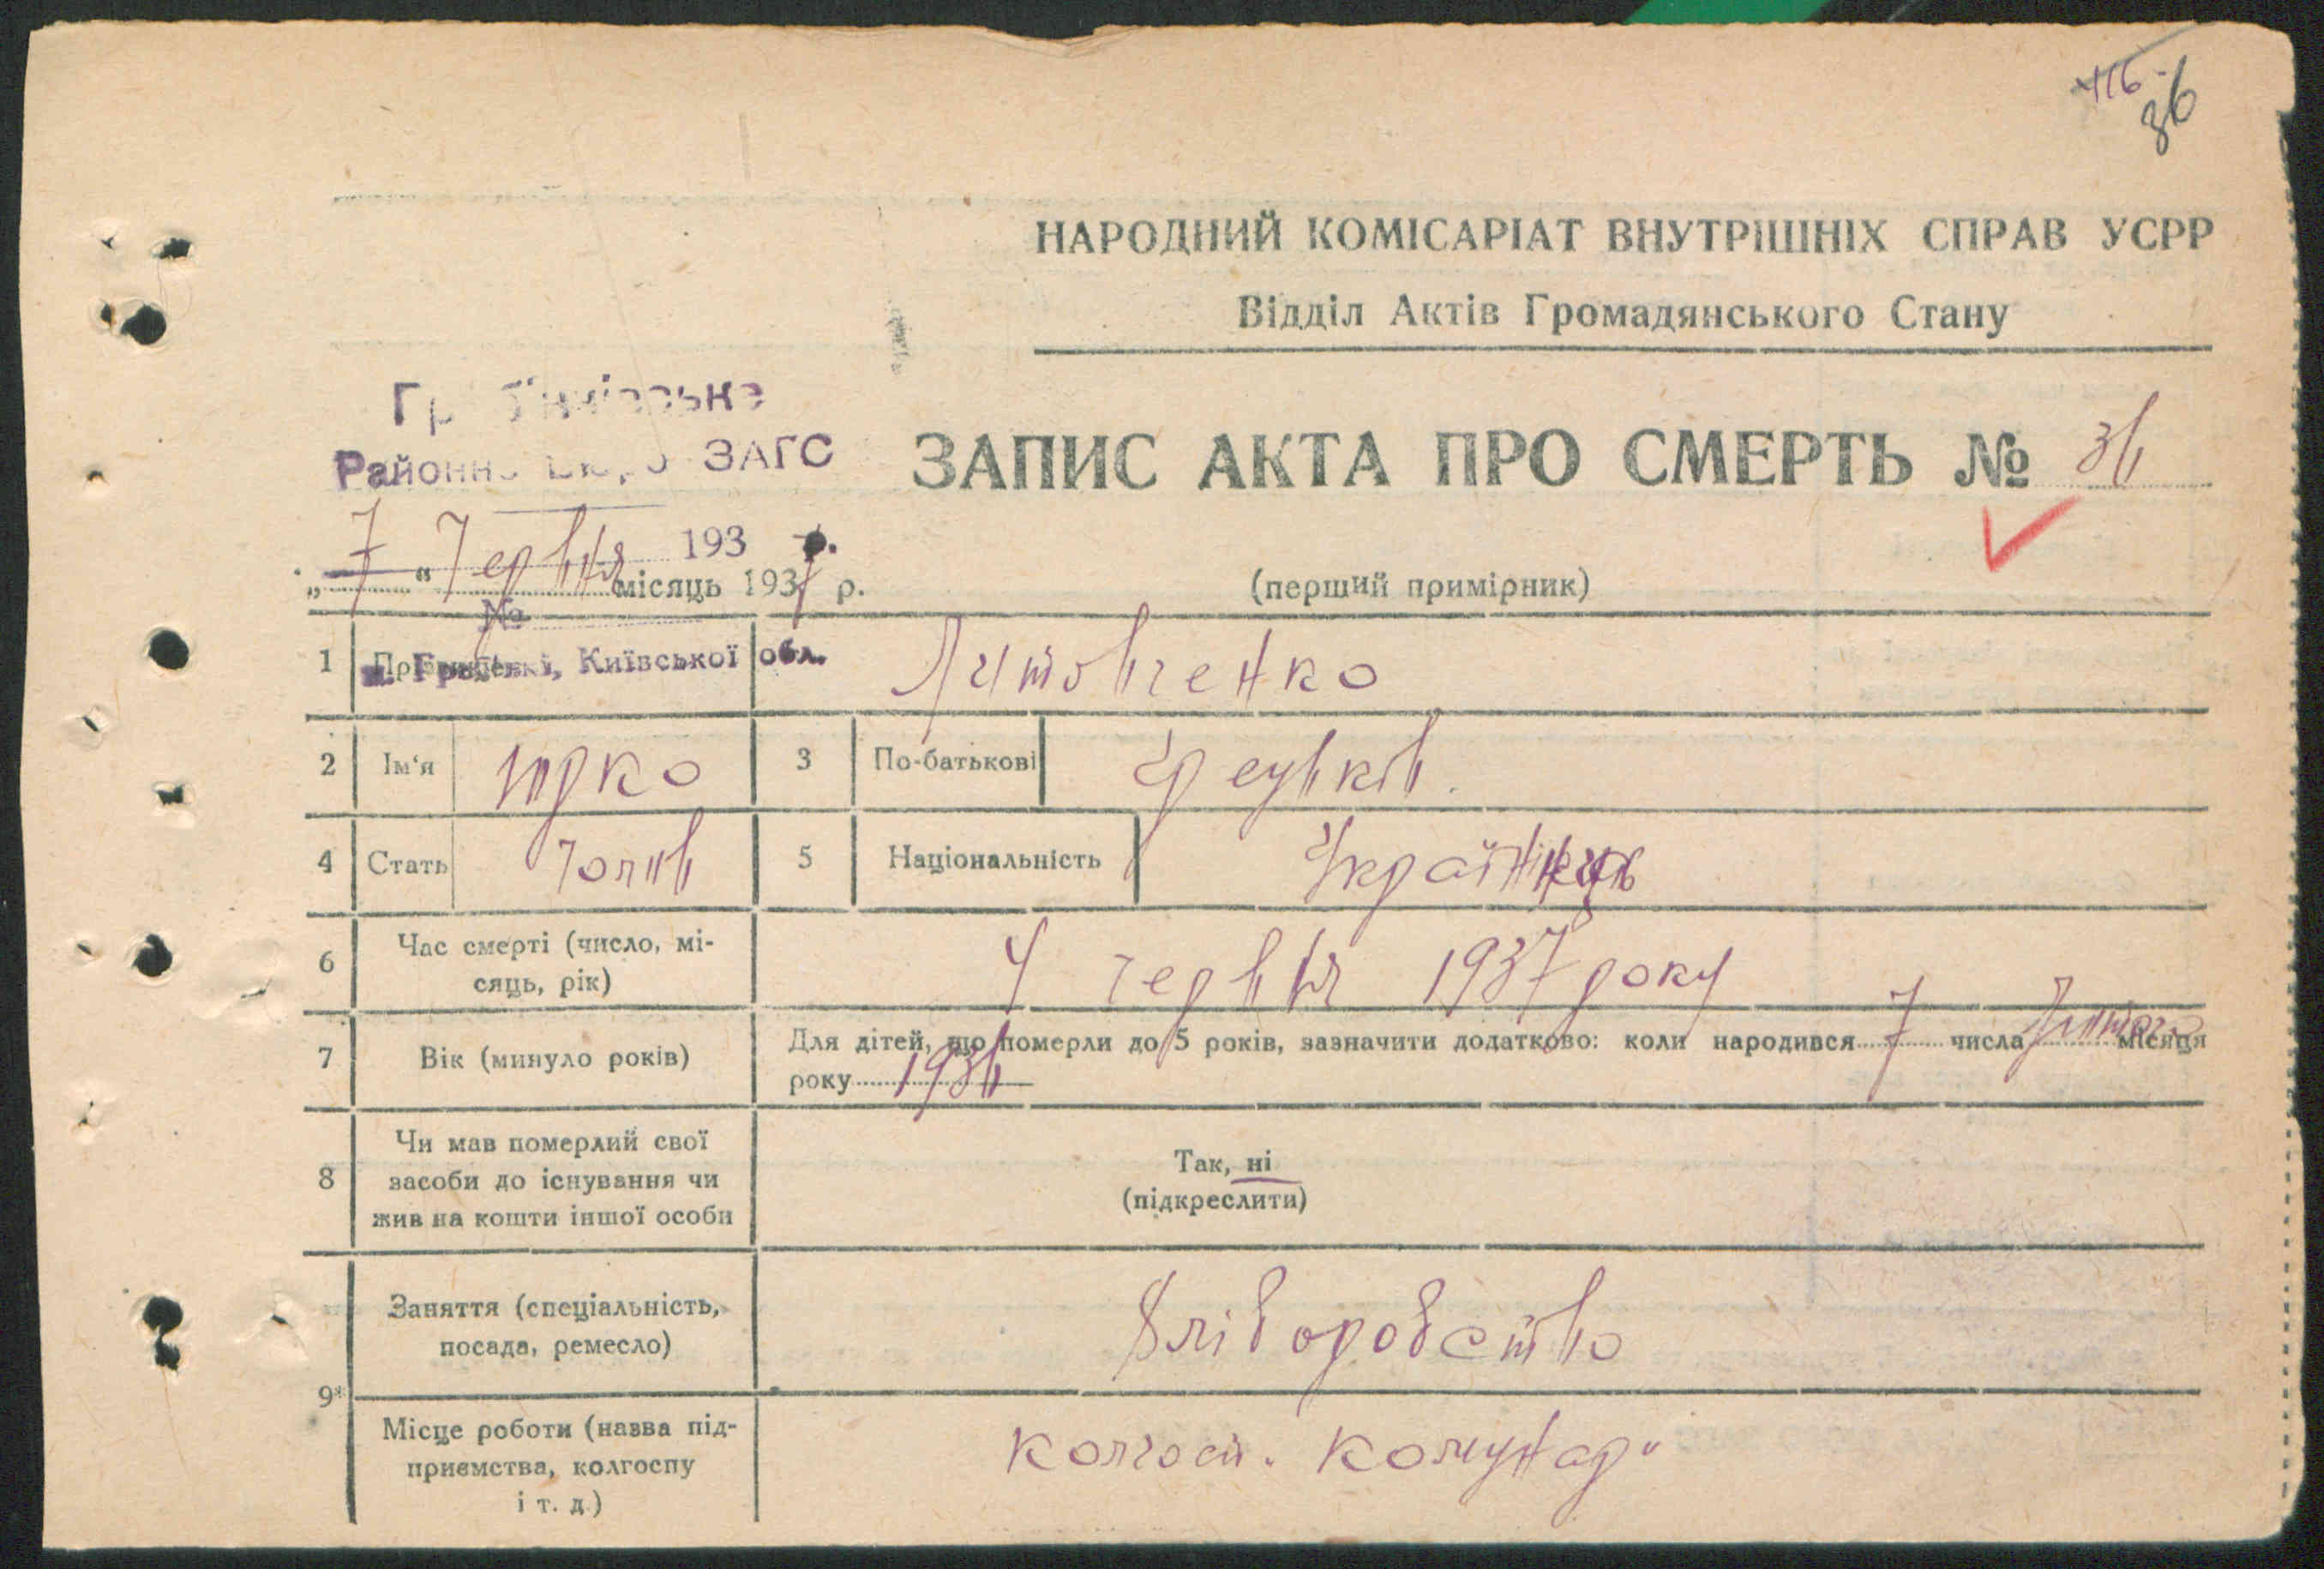 116
36
НАРОДНИЙ КОМІСАРІАТ ВНУТРІШНІХ СПРАВ УСРР
Відділ Актів Громадянського Стану
Районне Бюро ЗАГС
ЗАПИС АКТА ПРО СМЕРТЬ № 36
7 Червня 193 р.
„ 7 “ місяць 1937 р.
(перший примірник)
№
1 м. Гребінці, Київської обл. Литовченко
2 Ім‘я Юрко 3 По-батькові
4 Стать Чолов 5 Національність Українець
6 Час смерті (число, мі-
сяць, рік) 4 червня 1937 року
7 Вік (минуло років) Для дітей, що померли до 5 років, зазначити додатково: коли народився 7 числа Лютого місяця
року 1936
8 Чи мав померлий свої
засоби до існування чи
жив на кошти іншої особи
Так, ні
(підкреслити)
9* Заняття (спеціальність,
посада, ремесло) Хліборобство
Місце роботи (назва під-
приємства, колгоспу
і т. д.) колгосп. Комунар"